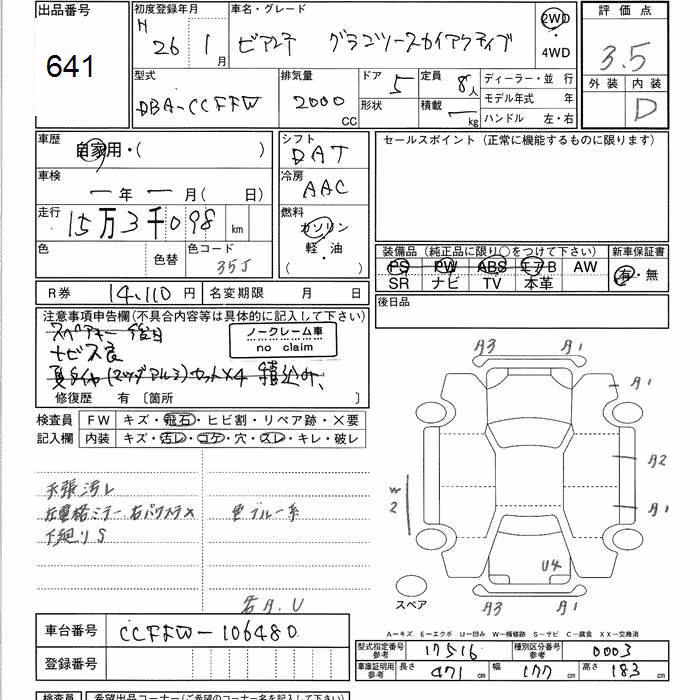 出品番号
641
初度登録年月
H 26 1月
車名・グレード
ビアンテ グランツ-スカイアクティブ
2WD
・
4WD
評価点
3.5
外装 内装
D
型式
DBA-CCFFW
排気量
2000
CC
ドア 5
形状
定員 8人
積載 kg
ディーラー・並行
モデル年式 年
ハンドル 左・右
車歴
自家用・( )
車検
一年一月( 日)
走行
15万3千098 km
色 色替
色コード
35J
シフト
DAT
冷房
AAC
燃料
ガソリン
軽・油
( )
セールスポイント (正常に機能するものに限ります)
装備品 (純正品に限り○をつけて下さい)
PS PW ABS エアB AW
SR ナビ TV 本革
新車保証書
有・無
R券 14,110円
名変期限 月 日
後日品
注意事項申告欄(不具合内容等は具体的に記入して下さい)
スペアキー 後日
ナビス良
夏タイヤ(マツダアルミ)セット×4 積込み、
ノークレーム車
no claim
修復歴 有 〔箇所 〕
検査員
記入欄
FW キズ・飛石・ヒビ割・リペア跡・×要
内装 キズ・汚レ・コゲ・穴・スレ・キレ・破レ
天張汚レ
下廻りS
色ブルー系
右A.U
A3 A1
A1
A2
A1
W
2
U4
A3 A1
スペア
A-キズ E-エクボ U-凹み W-補修跡 S-サビ C-腐食 XX-交換済
車台番号
CCFFW-106480
登録番号
型式指定番号
参考
17516
種別区分番号
参考
0003
車庫証明用
参考
長さ 471cm
幅 177cm
高さ 183cm
検査員
希望出品コーナー(ご希望のコーナー名を記入して下さい)